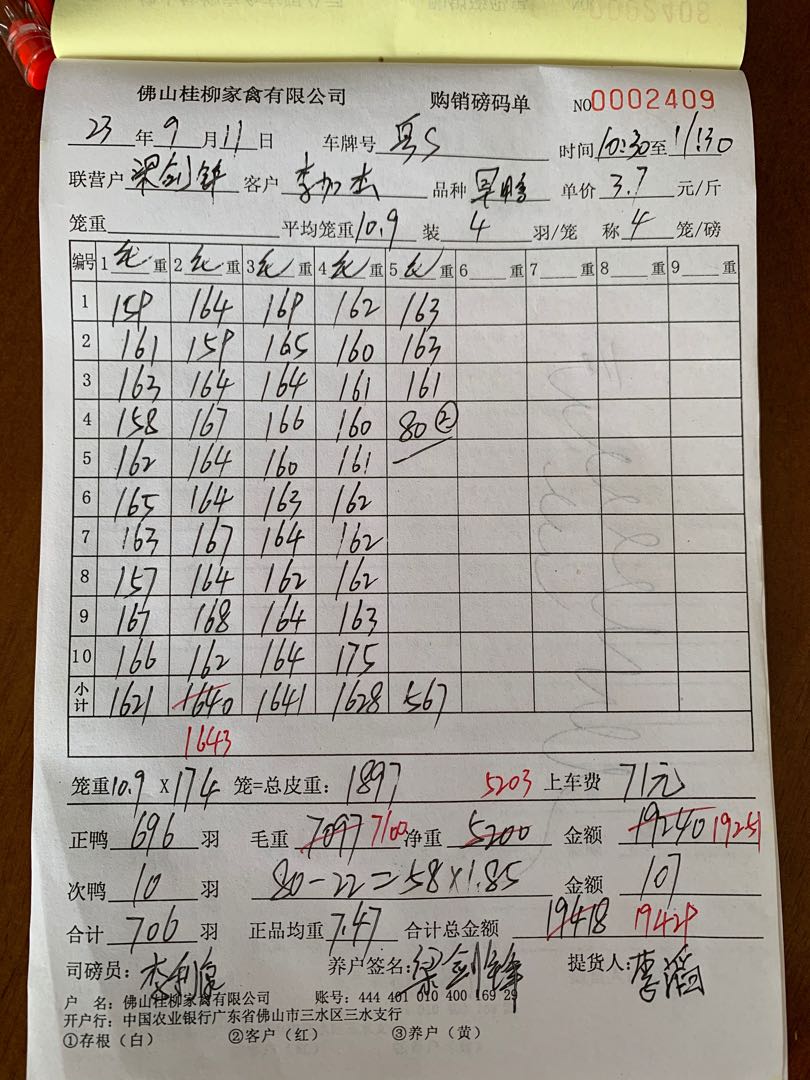 0002408
佛山桂柳家禽有限公司 购销磅码单 NO0002409
23 年 9 月 11 日 车牌号 粤S 时间 10:30 至 11:30
联营户 梁剑锋 客户 李加杰 品种 旱鸭 单价 3.7 元/斤
笼重 平均笼重 10.9 装 4 羽/笼 称 4 笼/磅
编号 1 毛 重 2 毛 重 3 毛 重 4 毛 重 5 毛 重 6 重 7 重 8 重 9 重
1 159 164 169 162 163
2 161 159 165 160 163
3 163 164 164 161 161
4 158 167 166 160 80 ②
5 162 164 160 161
6 165 164 163 162
7 163 167 164 162
8 157 164 162 162
9 167 168 164 163
10 166 162 164 175
小计 1621 1640 1641 1628 567
1643
笼重 10.9 X 174 笼=总皮重: 1897 5203 上车费 71元
正鸭 696 羽 毛重 7097 7100 净重 5200 金额 19240 19251
次鸭 10 羽 80-22=58×1.85 金额 107
合计 706 羽 正品均重 7.47 合计总金额 19418 19429
司磅员: 养户签名: 梁剑锋 提货人: 李滔
户 名: 佛山桂柳家禽有限公司 账号: 444 401 010 400 169 29
开户行: 中国农业银行广东省佛山市三水区三水支行
①存根（白） ②客户（红） ③养户（黄）